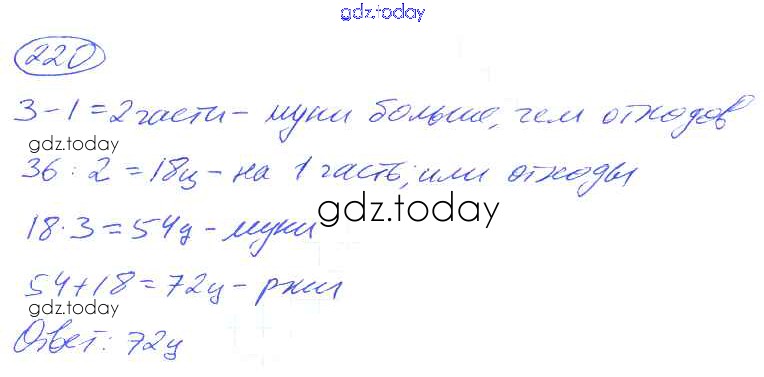 gdz.today
220
3-1=2части - муки больше, чем отходов
gdz.today
36:2=18ц - на 1 часть, или отходы
gdz.today
18·3=54ц - муки
54+18=72ц - ржи
gdz.today
Ответ: 72ц